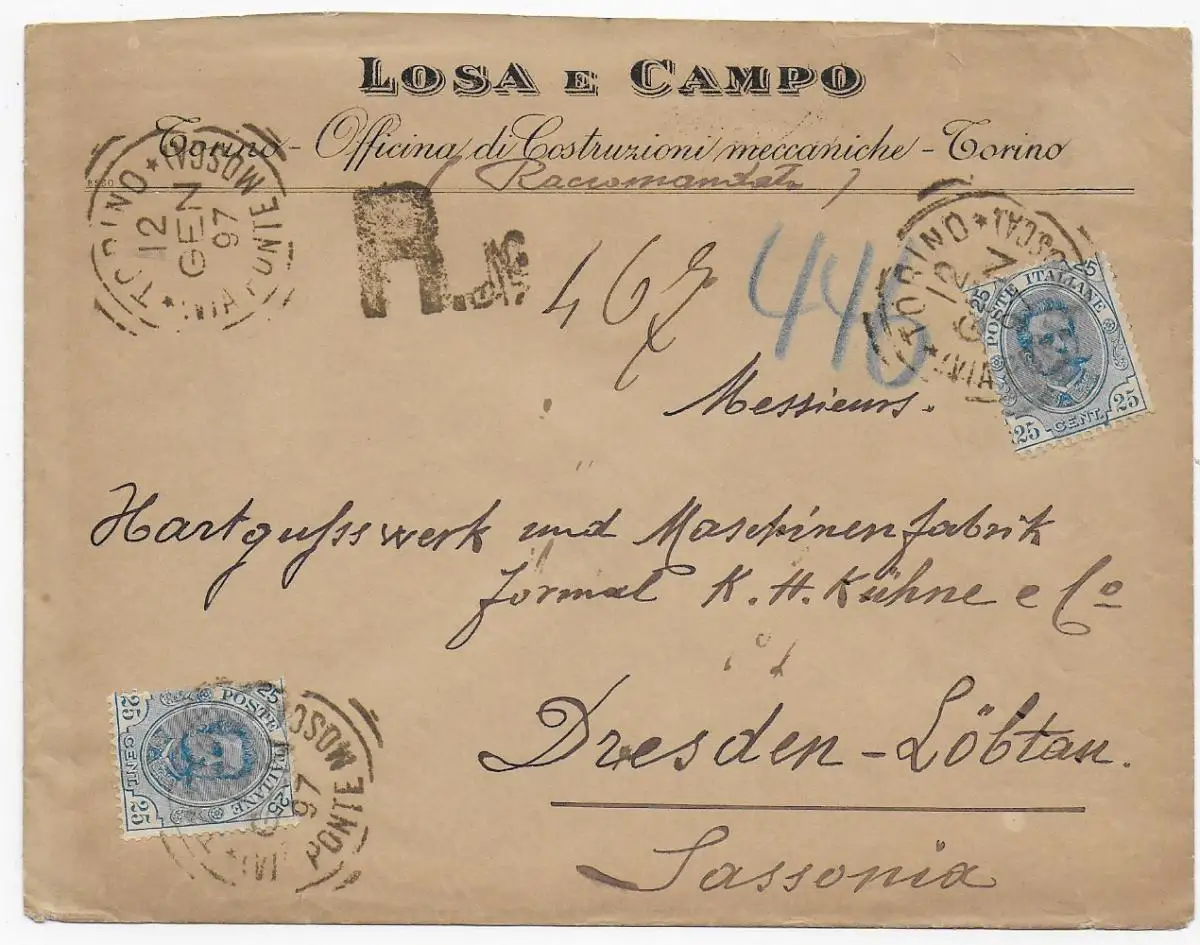 LOSA E CAMPO
Torino - Officina di Costruzioni meccaniche - Torino
( Raccomandata )
TORINO * (VIA PONTE MOSCA) *
12
GEN
97
R.
467
446
TORINO *
12
(VIA
25 POSTE ITALIANE 25
25 CENT. 25
Messieurs.
Hartgufsswerk und Maschinenfabrik
formal K. H. Kühne e Co
Dresden-Löbtau.
Sassonia
25 POSTE ITALIANE 25
25 CENT. 25
PONTE MOSC
97